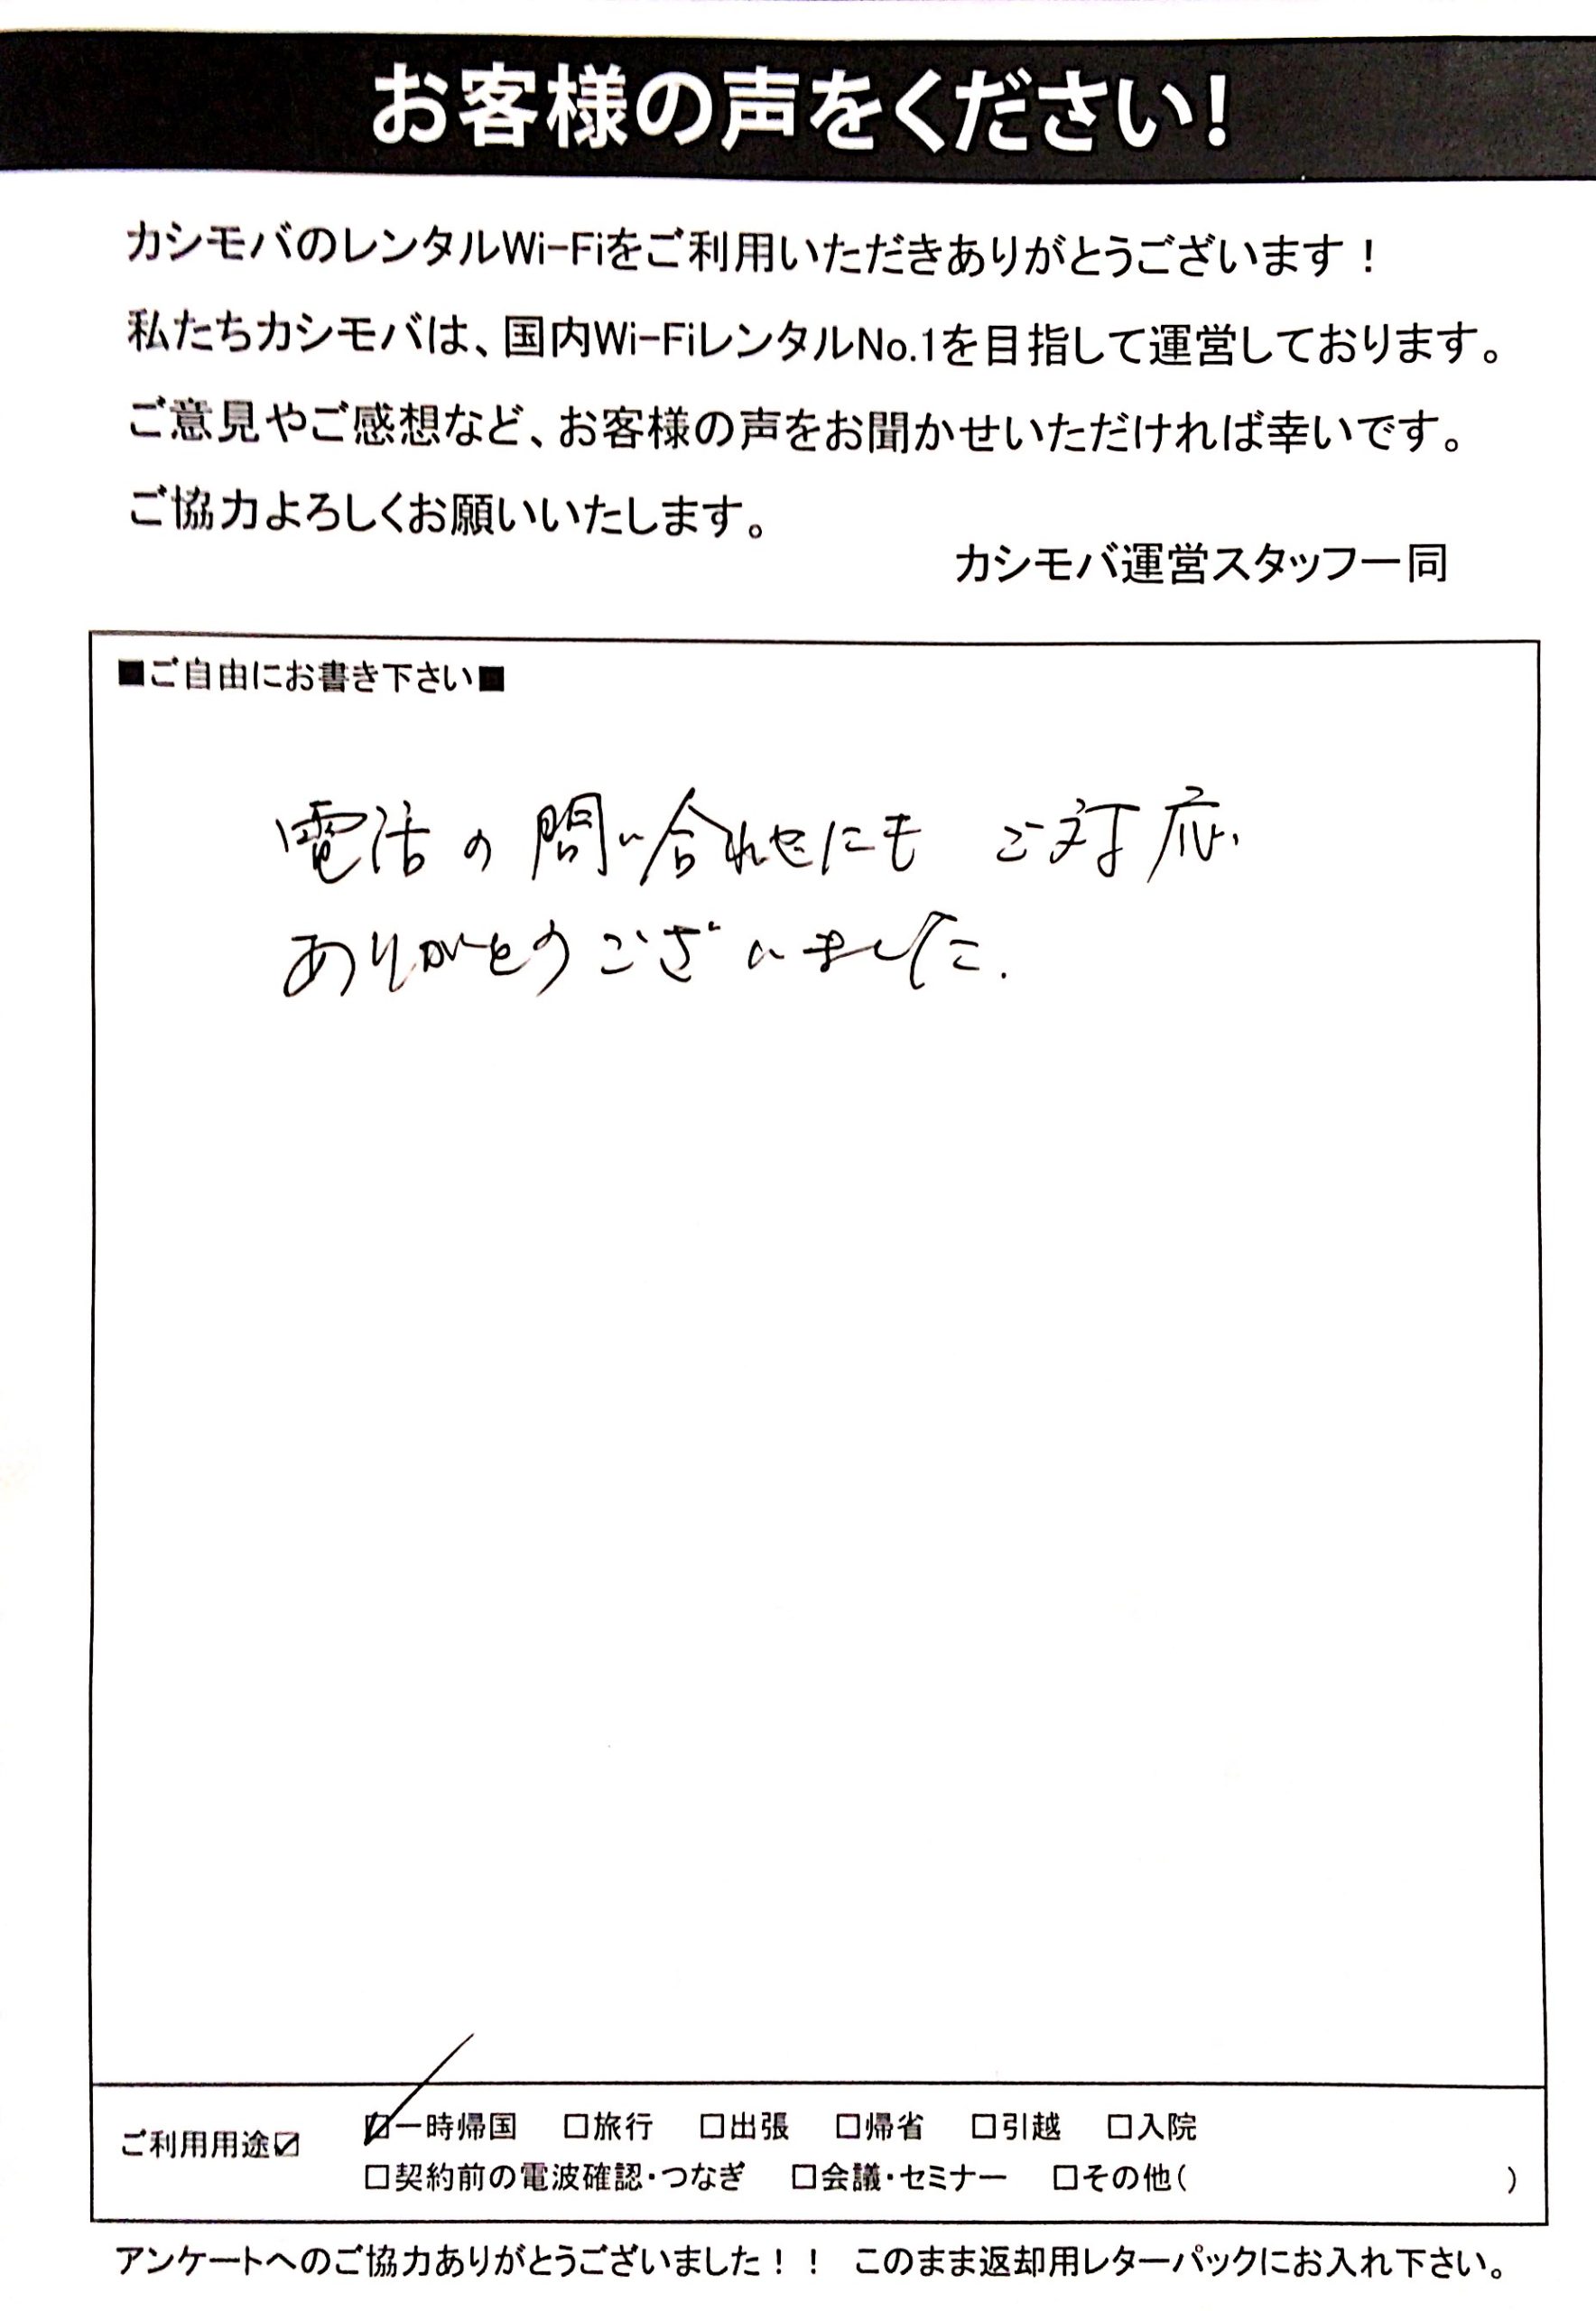 お客様の声をください!
カシモバのレンタルWi-Fiをご利用いただきありがとうございます！
私たちカシモバは、国内Wi-FiレンタルNo.1を目指して運営しております。
ご意見やご感想など、お客様の声をお聞かせいただければ幸いです。
ご協力よろしくお願いいたします。
カシモバ運営スタッフ一同
■ご自由にお書き下さい■
電話の問い合わせにも ご対応
ありがとうございました.
ご利用用途☑
☑一時帰国 □旅行 □出張 □帰省 □引越 □入院
□契約前の電波確認・つなぎ □会議・セミナー □その他( )
アンケートへのご協力ありがとうございました！！ このまま返却用レターパックにお入れ下さい。